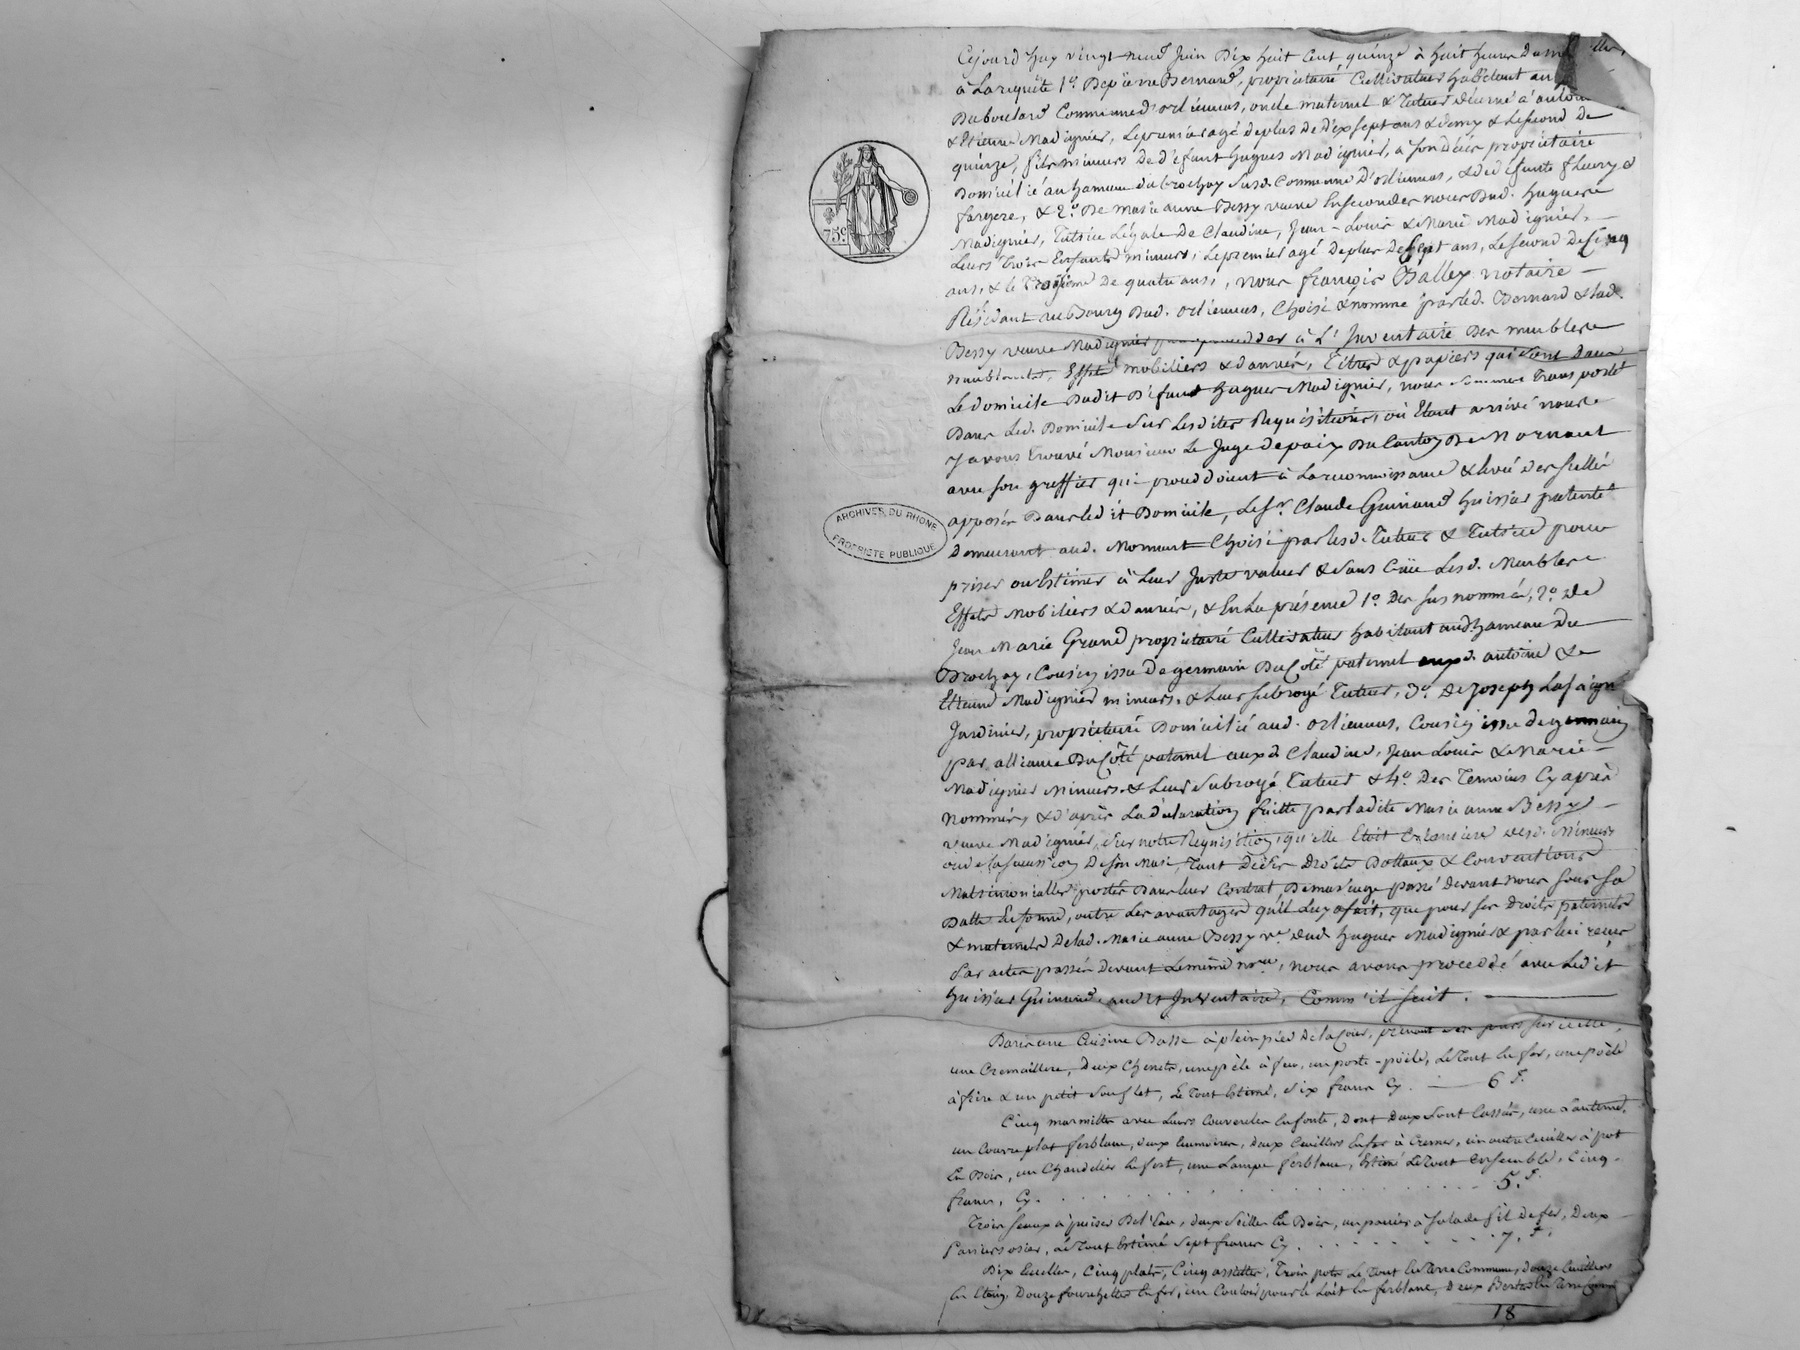 75c.
ARCHIVES DU RHONE
PROPRIETE PUBLIQUE
Cejourd'huy vingt neuf Juin Dix huit Cent quinze à huit heures du
à La requête 1º. De pierre Bernard, propriétaire Cultivateur habitant au
Duboulard Commune d'orliénas, oncle maternel & Tuteur décerné à antoine
& Etienne Madignier, Le premier agé de plus de Dix sept ans & demy & Le second de
quinze, fils mineurs De Défunt hugues Madignier, à son décès propriétaire
Domicilié au hameau du brochay susd. Commune D'orliénas, & de défunte fleury
fargere, & 2º. De Marie anne Bessy veuve En secondes noces Dud. hugues
Madignier, Tutrice Légale De Claudine, Jean-Louis & Marie Madignier,
Leurs Trois Enfants mineurs, Le premier agé de plus de Sept ans, Le second de Cinq
ans, & le Troisième De quatre ans, nous françois Balley notaire
Résidant au Bourg Dud. orliénas, choisi & nommé par led. Bernard & lad.
Bessy veuve Madignier pour procéder à L'Inventaire Des meubles
meublants, Effets mobiliers & danrées, Titres & papiers qui sont dans
Le domicile Dudit Défunt hugues Madignier, nous sommes Transporté
Dans Led. Domicile sur Lesdites Requisitions, où Etant arrivé nous
y avons trouvé Monsieur Le Juge de paix Du Canton De Mornant
avec son greffier qui procédoient à La reconnoissance & levée des scellés
apposés Dans led it Domicile, Le Sr. Claude Guinand huissier patenté
demeurant aud. Mornant Choisi par lesd. Tuteur & Tutrice pour
priser ou Estimer à Leur Juste valeur & sans Crüe Lesd. Meubles
Effets Mobiliers & danrées, & En La présence 1º. Des susnommés, 2º. de
Jean Marie Grand propriétaire Cultivateur habitant aud. hameau Du
Brochay, Cousin issu De germain Du Côté paternel auxd. antoine &
Etienne Madignier mineurs, & Leur subrogé Tuteur, 3º. de Joseph
Jardinier, propriétaire Domicilié aud. orliénas, Cousin issu de germain
par alliance Du Côté paternel auxd. Claudine, Jean Louis & Marie
Madignier Mineurs & Leur Subrogé Tuteur & 4º. Des Temoins Cy après
nommés, & D'après La déclaration faitte par ladite Marie anne Bessy
veuve Madignier, sur notre Requisition, qu'elle Etoit Créancière desd. Mineurs
ou de la succession De son Mari, Tant De ses Droits Dottaux & Conventions
Matrimonialles portés Dans leur Contrat De mariage passé devant nous sous sa
Datte En forme, outre Les avantages qu'il Luy a fait, que pour ses droits paternels
& maternels De lad. Marie anne Bessy ve. dud. hugues Madignier & par lui reçus
par actes passés devant Le même nre., nous avons procédé avec Led it
huissier Guinand, aud it Inventaire, Comm'il suit.
Dans une Cuisine Basse à plein pied De la Cour, prenant ses jours sur icelle,
une Cremaillere, Deux Chenets, une pèle à feu, un porte-poële, Le tout En fer, une poële
à frire & un petit soufflet, Le tout Estimé, six francs Cy. 6 f.
Cinq marmittes avec Leurs Couvercles En fonte, Dont Deux sont Cassées, une Lanterne,
un Couvre plat ferblanc, deux Ecumoires, deux Cuilliers En fer à Cremer, un autre Cuillier à pot
En Bois, un Chandelier En fert, une Lampe ferblanc, Estimé Le Tout Ensemble, Cinq
francs, Cy. 5. f.
Trois seaux à puiser De l'Eau, deux Seilles En Bois, un panier à salade fil de fer, Deux
Paniers osier, Le Tout Estimé Sept francs Cy. 7. f.
Dix Ecuelles, Cinq plats, Cinq assiettes, Trois pots Le Tout En Terre Commune, douze Cuilliers
En Etain, Douze fourchettes En fer, un Couloir pour le Lait En ferblanc, Deux Bertes En Terre
18